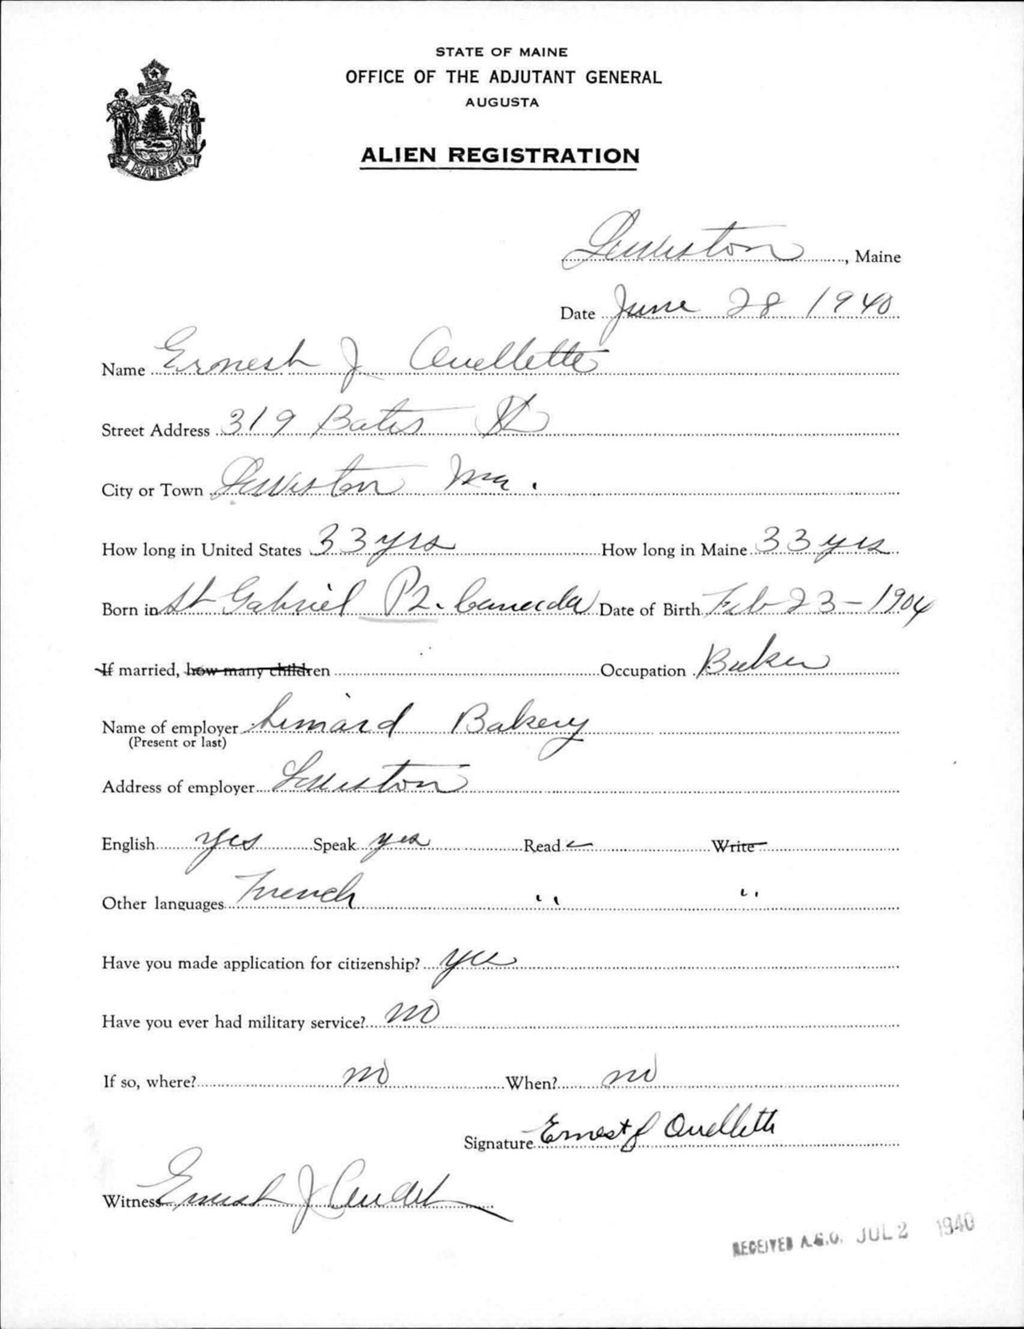 STATE OF MAINE
OFFICE OF THE ADJUTANT GENERAL
AUGUSTA
ALIEN REGISTRATION
MAINE
Lewiston, Maine
Date June 28 1940
Name Ernest J Ouellette
Street Address 319 Bates St
City or Town Lewiston Me.
How long in United States 33 yrs How long in Maine 33 yrs
Born in St Gabriel P2. Canada Date of Birth Feb 23 - 1904
If married, how many children Occupation Baker
Name of employer Bakery
(Present or last)
Address of employer Lewiston
English yes Speak yes Read Write
Other languages French " "
Have you made application for citizenship? yes
Have you ever had military service? no
If so, where? no When? no
Signature Ernest J Ouellette
Witness Ernest J
RECEIVED A.G.O. JUL 2 1940